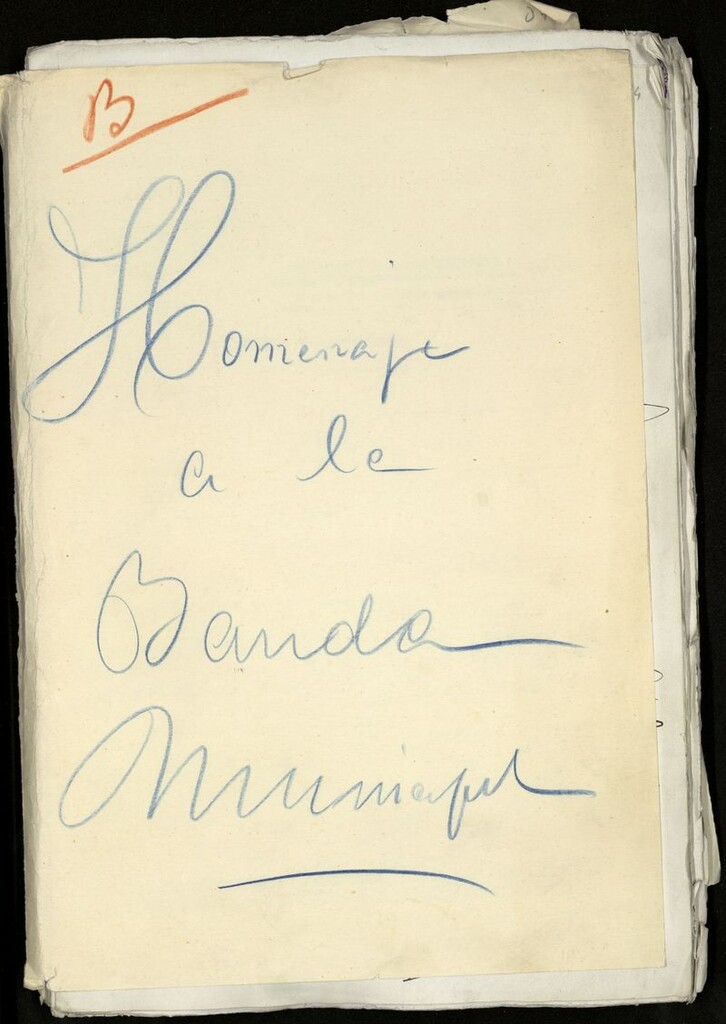 B
Homenaje
a la
Banda
Municipal